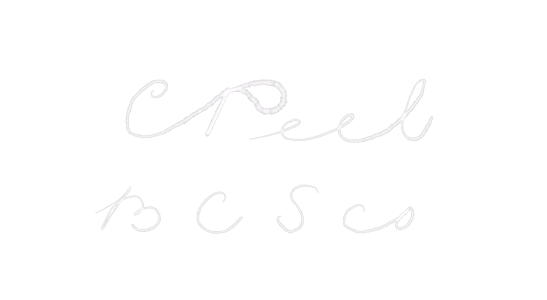 C Peel
B C S Co